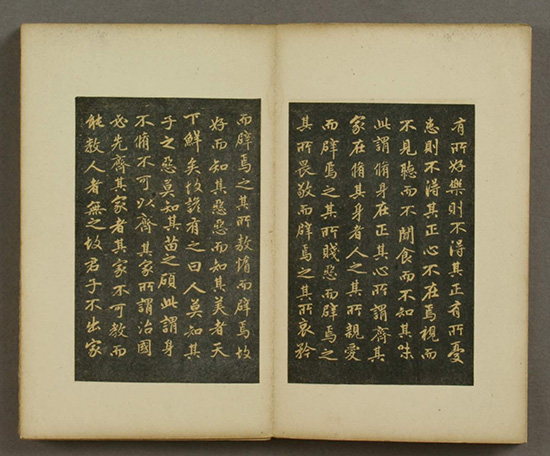 有所好樂則不得其正有所憂
患則不得其正心不在焉視而
不見聽而不聞食而不知其味
此謂脩身在正其心所謂齊其
家在脩其身者人之其所親愛
而辟焉之其所賤惡而辟焉之
其所畏敬而辟焉之其所哀矜
而辟焉之其所敖惰而辟焉故
好而知其惡惡而知其美者天
下鮮矣故諺有之曰人莫知其
子之惡莫知其苗之碩此謂身
不脩不可以齊其家所謂治國
必先齊其家者其家不可教而
能教人者無之故君子不出家